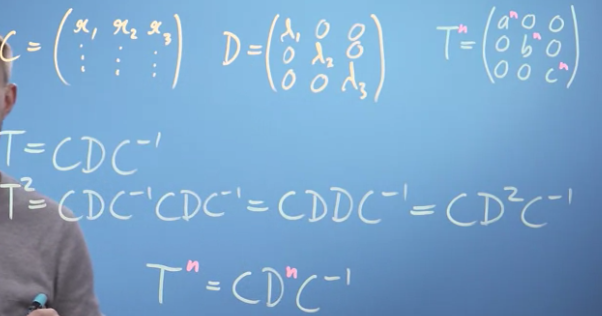 C = (x₁ x₂ x₃ ⋮ ⋮ ⋮) D = (λ₁ 0 0 0 λ₂ 0 0 0 λ₃) Tⁿ = (aⁿ 0 0 0 bⁿ 0 0 0 cⁿ)
T = CDC⁻¹
T² = CDC⁻¹CDC⁻¹ = CDDC⁻¹ = CD²C⁻¹
Tⁿ = CDⁿC⁻¹